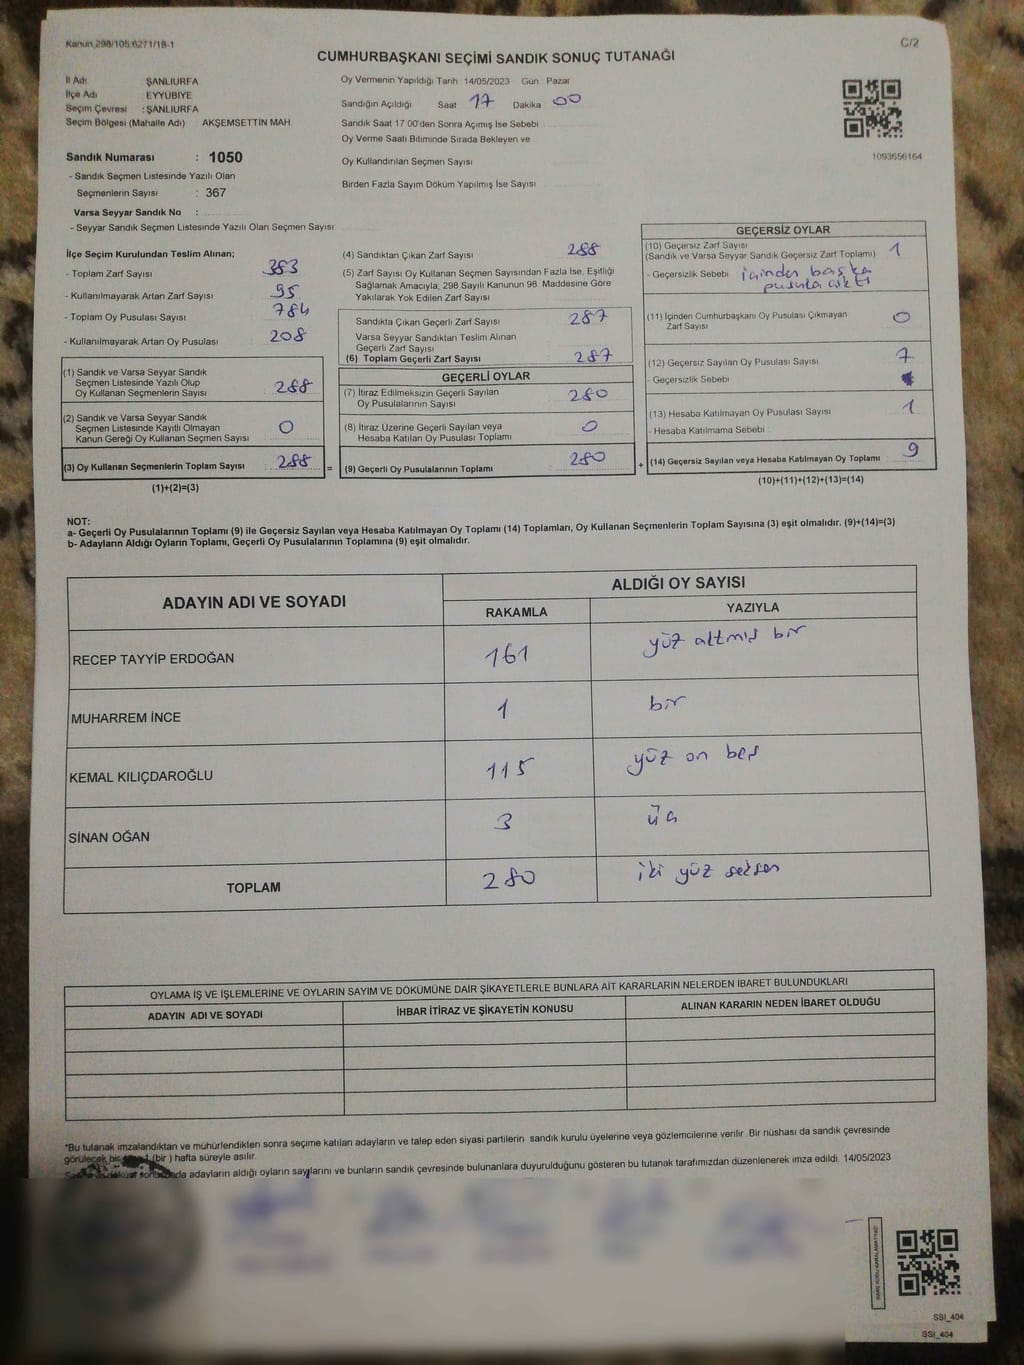 Kanun,298/105,6271/18-1
C/2
CUMHURBAŞKANI SEÇİMİ SANDIK SONUÇ TUTANAĞI
İl Adı ŞANLIURFA
İlçe Adı EYYUBİYE
Seçim Çevresi : ŞANLIURFA
Seçim Bölgesi (Mahalle Adı) AKŞEMSETTİN MAH.
Oy Vermenin Yapıldığı Tarih 14/05/2023 Gün : Pazar
Sandığın Açıldığı Saat 17 Dakika 00
Sandık Saat 17 00'den Sonra Açımış İse Sebebi
Oy Verme Saati Bitiminde Sırada Bekleyen ve
Oy Kullandırılan Seçmen Sayısı
Birden Fazla Sayım Döküm Yapılmış İse Sayısı
1093656164
Sandık Numarası : 1050
- Sandık Seçmen Listesinde Yazılı Olan
Seçmenlerin Sayısı : 367
Varsa Seyyar Sandık No :
- Seyyar Sandık Seçmen Listesinde Yazılı Olan Seçmen Sayısı
İlçe Seçim Kurulundan Teslim Alınan;
- Toplam Zarf Sayısı 383
- Kullanılmayarak Artan Zarf Sayısı 95
- Toplam Oy Pusulası Sayısı 784
- Kullanılmayarak Artan Oy Pusulası 208
(1) Sandık ve Varsa Seyyar Sandık
Seçmen Listesinde Yazılı Olup
Oy Kullanan Seçmenlerin Sayısı 288
(2) Sandık ve Varsa Seyyar Sandık
Seçmen Listesinde Kayıtlı Olmayan
Kanun Gereği Oy Kullanan Seçmen Sayısı 0
(3) Oy Kullanan Seçmenlerin Toplam Sayısı 288 =
(1)+(2)=(3)
(4) Sandıktan Çıkan Zarf Sayısı 288
(5) Zarf Sayısı Oy Kullanan Seçmen Sayısından Fazla İse, Eşitliği
Sağlamak Amacıyla, 298 Sayılı Kanunun 98. Maddesine Göre
Yakılarak Yok Edilen Zarf Sayısı
Sandıkta Çıkan Geçerli Zarf Sayısı 287
Varsa Seyyar Sandıktan Teslim Alınan
Geçerli Zarf Sayısı
(6) Toplam Geçerli Zarf Sayısı 287
GEÇERLİ OYLAR
(7) İtiraz Edilmeksizin Geçerli Sayılan
Oy Pusulalarının Sayısı 280
(8) İtiraz Üzerine Geçerli Sayılan veya
Hesaba Katılan Oy Pusulası Toplamı 0
(9) Geçerli Oy Pusulalarının Toplamı 280 +
GEÇERSİZ OYLAR
(10) Geçersiz Zarf Sayısı
(Sandık ve Varsa Seyyar Sandık Geçersiz Zarf Toplamı) 1
- Geçersizlik Sebebi içinden başka
pusula çıktı
(11) İçinden Cumhurbaşkanı Oy Pusulası Çıkmayan
Zarf Sayısı 0
(12) Geçersiz Sayılan Oy Pusulası Sayısı 7
- Geçersizlik Sebebi
(13) Hesaba Katılmayan Oy Pusulası Sayısı 1
- Hesaba Katılmama Sebebi
(14) Geçersiz Sayılan veya Hesaba Katılmayan Oy Toplamı 9
(10)+(11)+(12)+(13)=(14)
NOT:
a- Geçerli Oy Pusulalarının Toplamı (9) ile Geçersiz Sayılan veya Hesaba Katılmayan Oy Toplamı (14) Toplamları, Oy Kullanan Seçmenlerin Toplam Sayısına (3) eşit olmalıdır. (9)+(14)=(3)
b- Adayların Aldığı Oyların Toplamı, Geçerli Oy Pusulalarının Toplamına (9) eşit olmalıdır.
ADAYIN ADI VE SOYADI
ALDIĞI OY SAYISI
RAKAMLA YAZIYLA
RECEP TAYYİP ERDOĞAN 161 yüz altmış bir
MUHARREM İNCE 1 bir
KEMAL KILIÇDAROĞLU 115 yüz on beş
SİNAN OĞAN 3 üç
TOPLAM 280 iki yüz seksen
OYLAMA İŞ VE İŞLEMLERİNE VE OYLARIN SAYIM VE DÖKÜMÜNE DAİR ŞİKAYETLERLE BUNLARA AİT KARARLARIN NELERDEN İBARET BULUNDUKLARI
ADAYIN ADI VE SOYADI İHBAR İTİRAZ VE ŞİKAYETİN KONUSU ALINAN KARARIN NEDEN İBARET OLDUĞU
"Bu tutanak imzalandıktan ve mühürlendikten sonra seçime katılan adayların ve talep eden siyasi partilerin sandık kurulu üyelerine veya gözlemcilerine verilir. Bir nüshası da sandık çevresinde
görülecek bir 1 (bir ) hafta süreyle asılır.
adayların aldığı oyların sayılarını ve bunların sandık çevresinde bulunanlara duyurulduğunu gösteren bu tutanak tarafımızdan düzenlenerek imza edildi. 14/05/2023
SSI_404
SSI_404